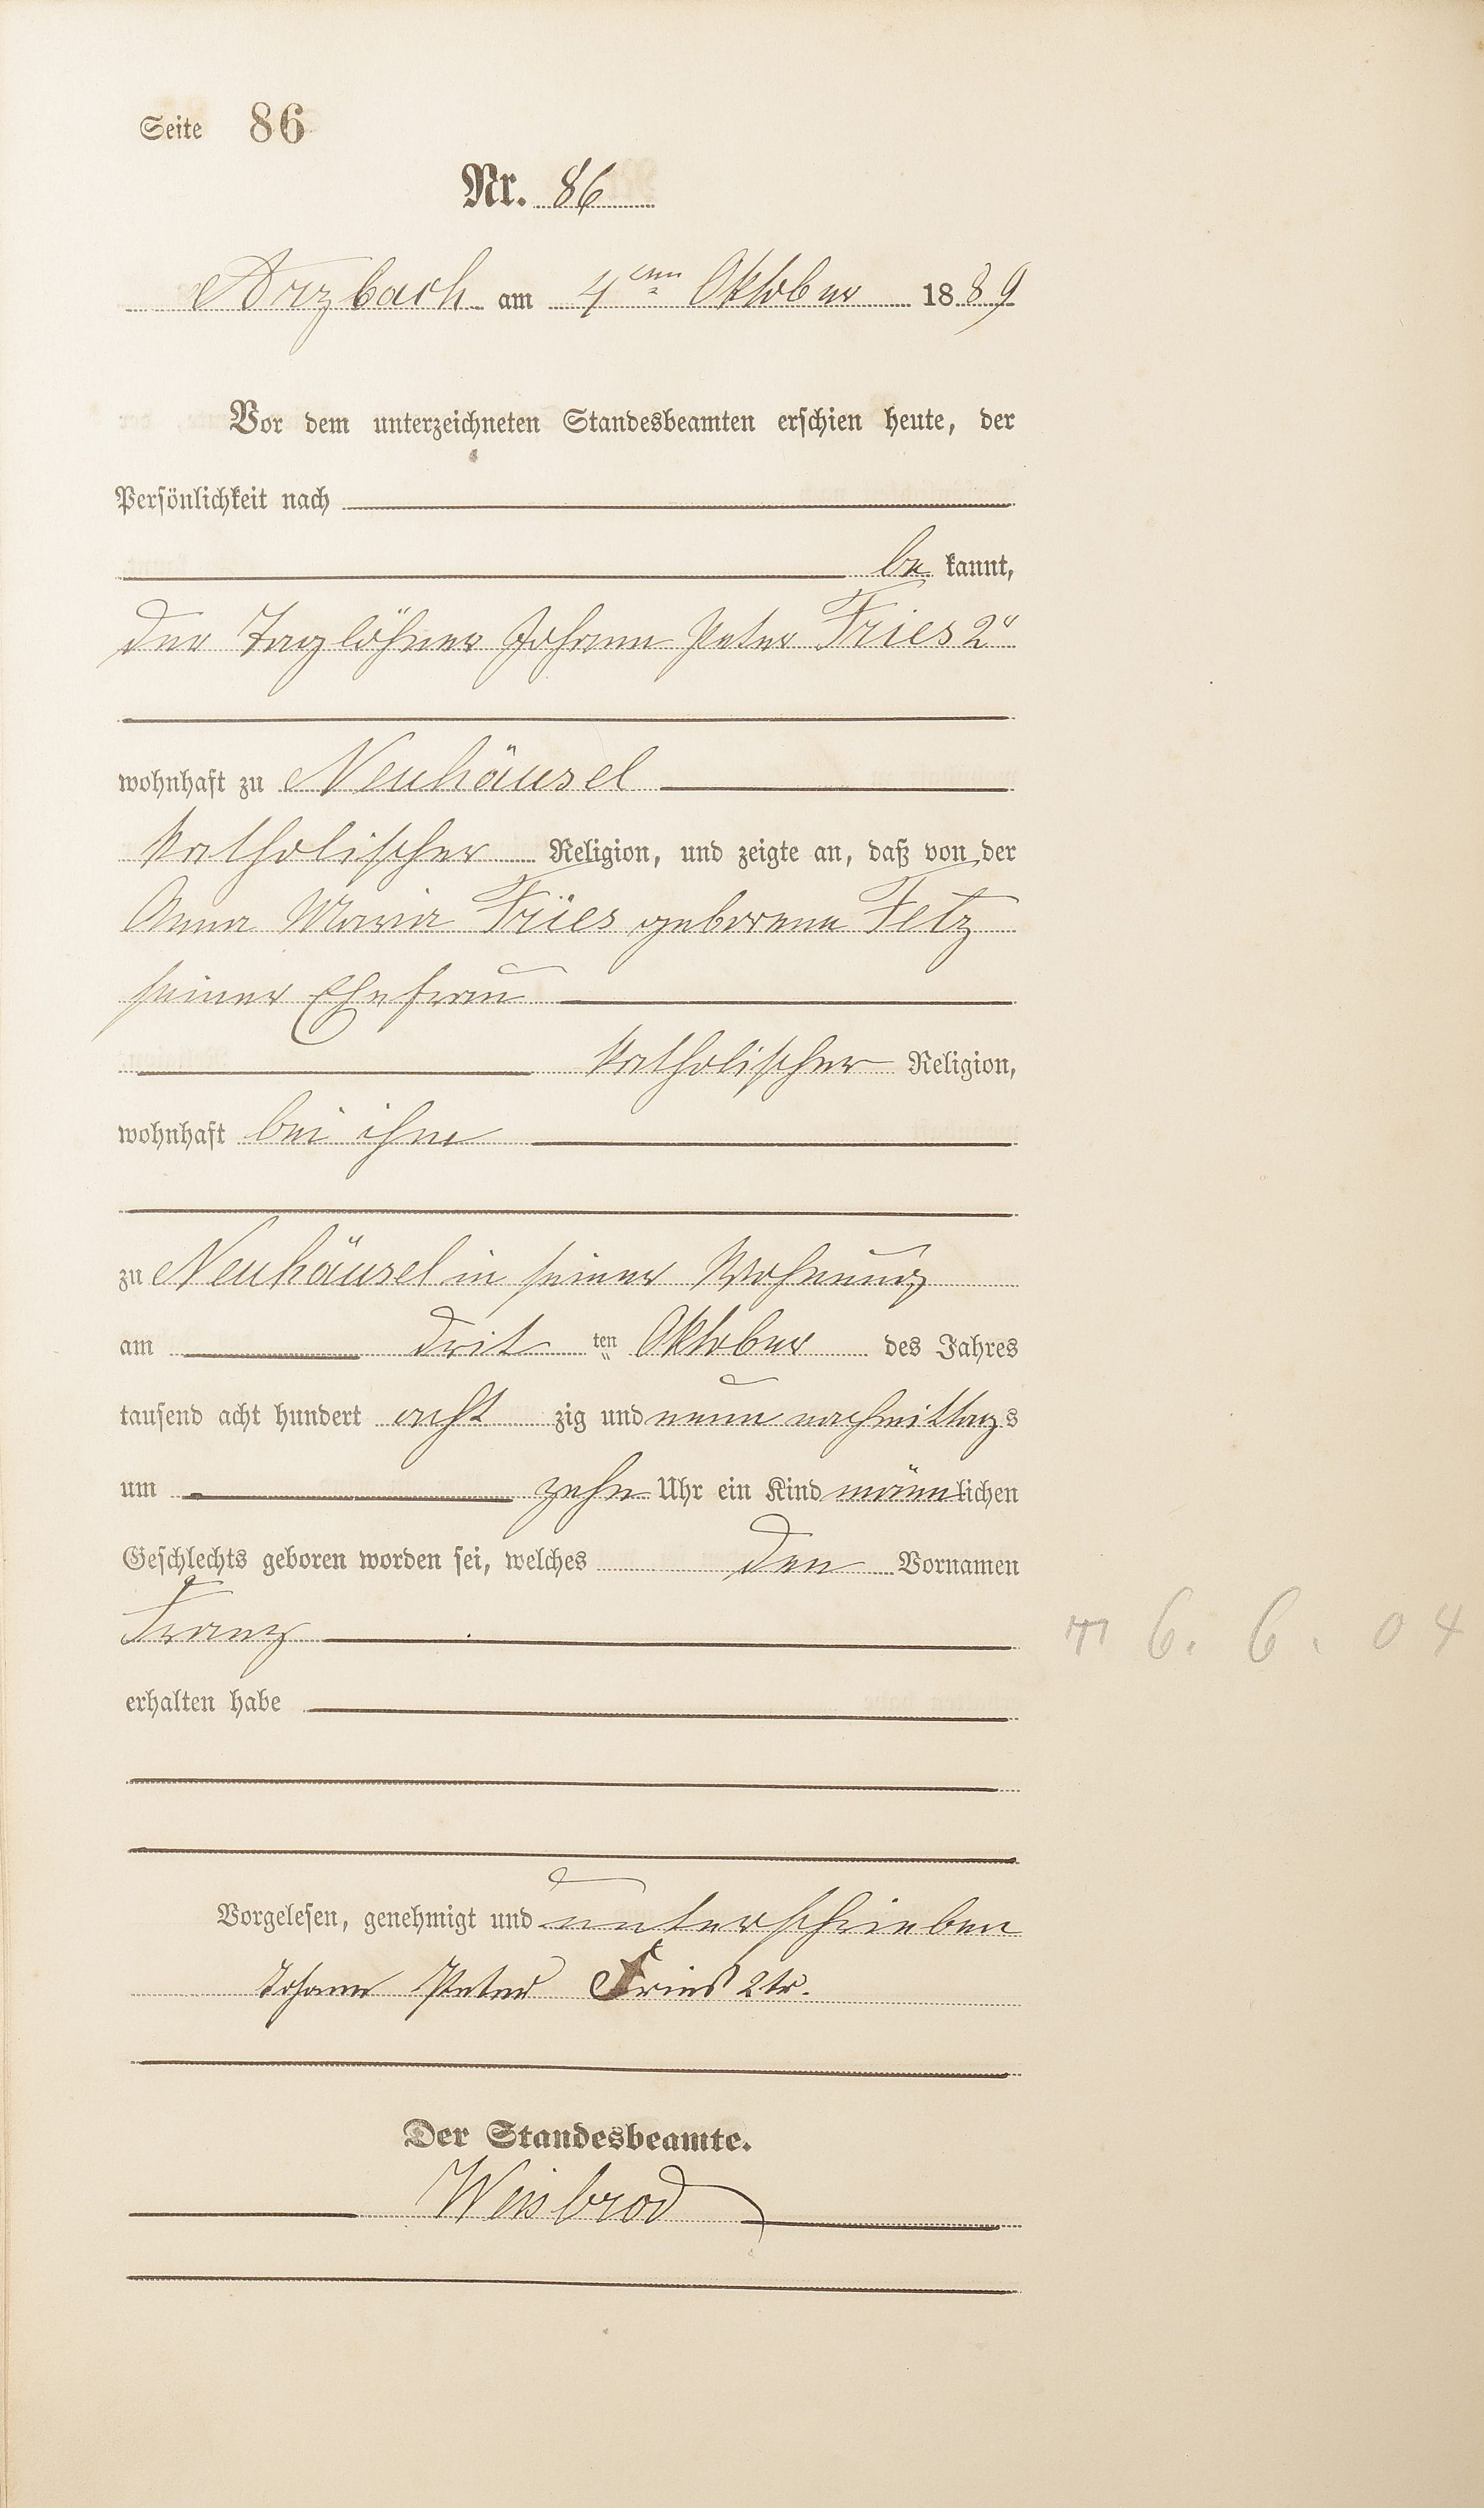 Seite 86
Nr. 86
Arzbach am 4ten Oktober 1889
Vor dem unterzeichneten Standesbeamten erschien heute, der
Persönlichkeit nach
be kannt,
der Taglöhner Johann Peter Fries 2r
wohnhaft zu Neuhäusel
katholischer Religion, und zeigte an, daß von der
Anna Maria Fries geborene Fetz
seiner Ehefrau
katholischer Religion,
wohnhaft bei ihm
zu Neuhäusel in seiner Wohnung
am drit ten Oktober des Jahres
tausend acht hundert acht zig und neun nachmittags
um zehn Uhr ein Kind männlichen
Geschlechts geboren worden sei, welches den Vornamen
Franz
6. 6. 04
erhalten habe
Vorgelesen, genehmigt und unterschrieben
Johann Peter Fries 2tr.
Der Standesbeamte.
Weisbrod